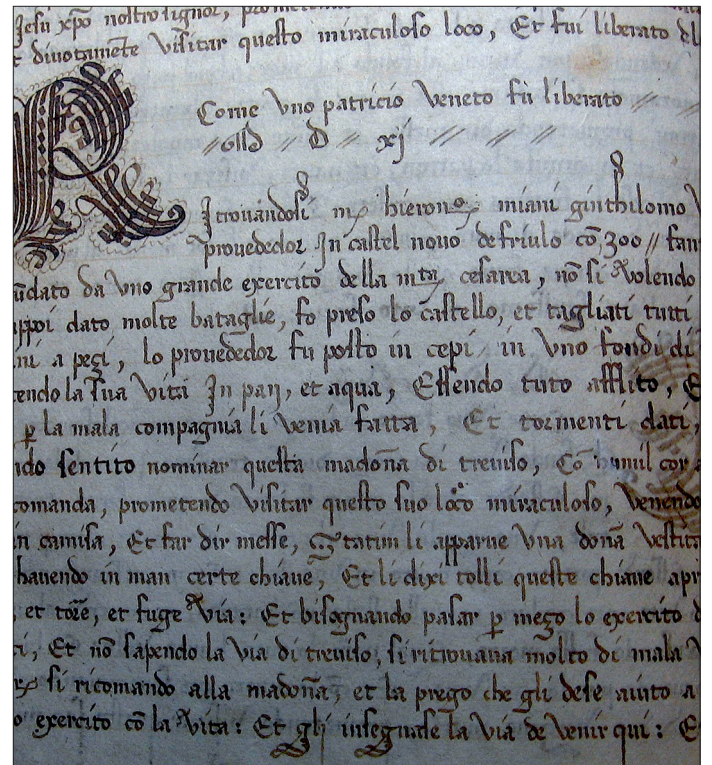 Jesu xpo nostro signor,
divotamete visitar questo miraculoso loco, Et fui liberato
Come vno patricio veneto fu liberato
D xj
Itrovandosi mᷓ hieronᵒ miani ginthilomo
provededor In castel novo de friulo cō, 300 // fan
ūdato da vno grande exercito della mta cesarea, nō si volendo
appoi dato molte bataglie, fo preso lo castello, et tagliati tutti
ni a pezi, lo provededor fu posto in cepi in vno fondi di
tendo la sua vita In pan, et aqua, Essendo tuto afflito, E
p̱ la mala compagnia li venia fatta, Et tormenti dati,
ndo sentito nominar questa madoña di treviso, Cō humil cor a
comanda, prometendo visitar questo suo loco miraculoso, venendo
in camisa, Et far dir messe, Statim li apparue vna doña vestita
havendo in man certe chiave, Et li dixi tolli queste chiave apr
, et tore, et fuge via: Et bisognando pasar p̱ mezo lo exercito d
ci, Et nō sapendo la via di treviso, si ritrovava molto di mala v
si ricomando alla madoña, et la prego che gli dese aiuto a
o exercito cō la vita: Et gli insegnase la via de venir qui: E